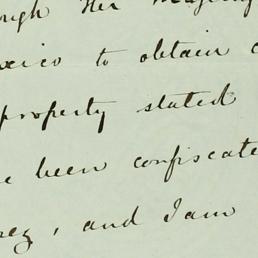 ough Her Majesty
exico to obtain
property stated
e been confiscate
rez, and I am